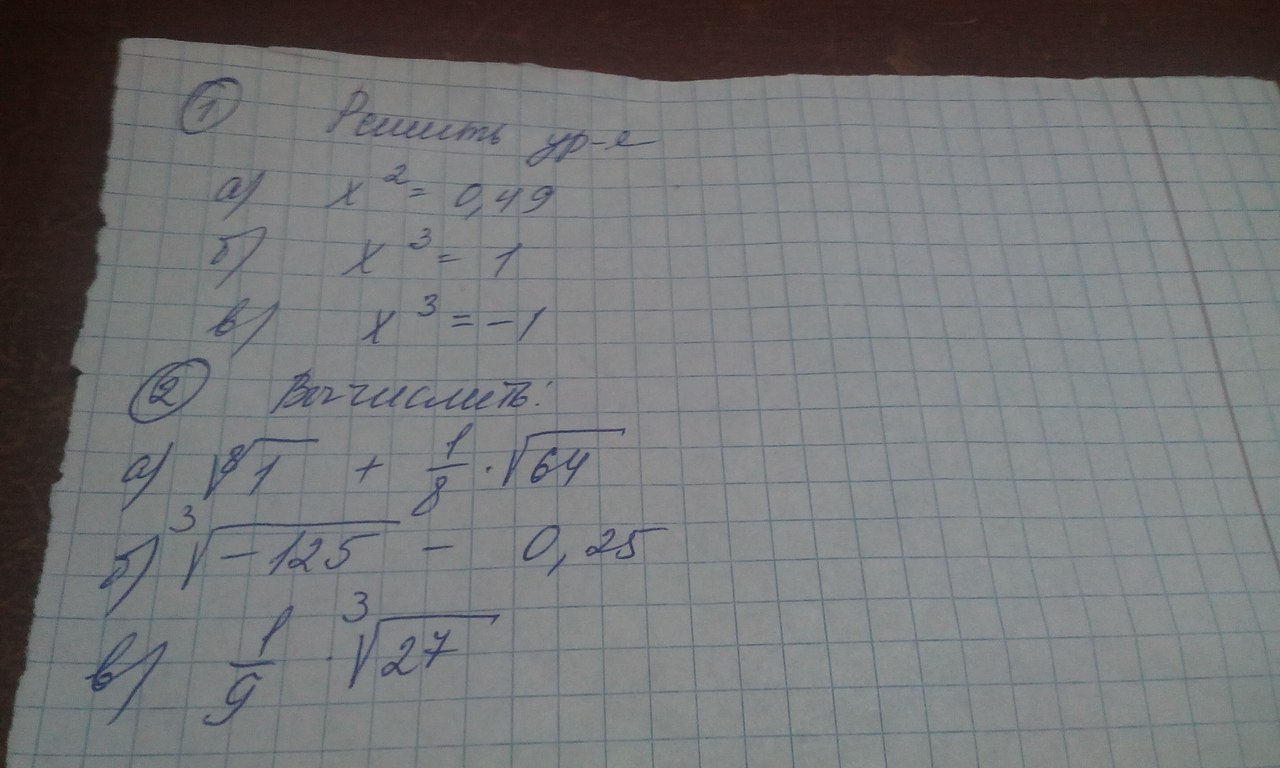 ① Решить ур-я
а) x² = 0,49
б) x³ = 1
в) x³ = -1
② Вычислить:
а) √81 + 1/8 · √64
б) ³√-125 - 0,25
в) 1/9 · ³√27